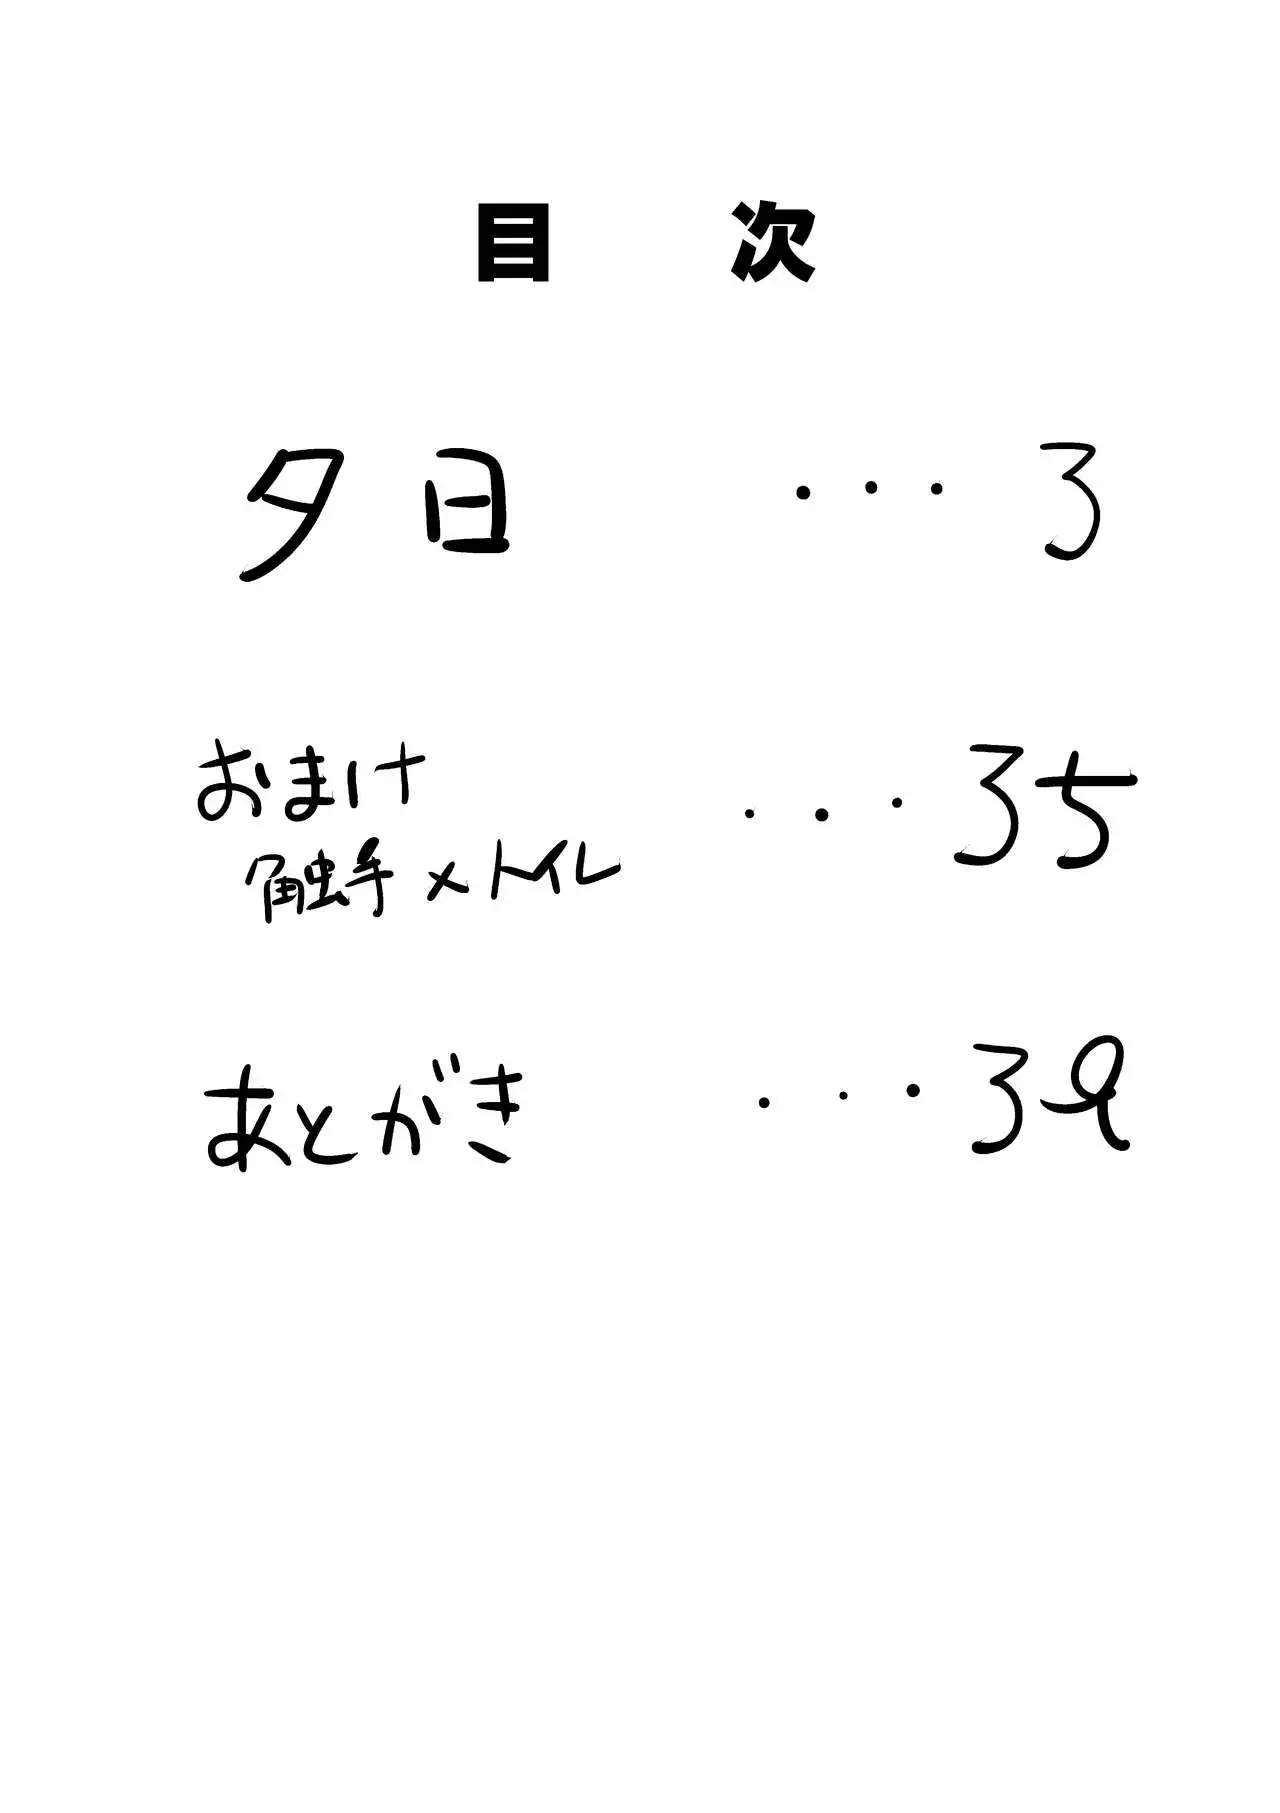 目 次
夕日 ・・・3
おまけ ・・・35
触手×トイレ
あとがき ・・・39